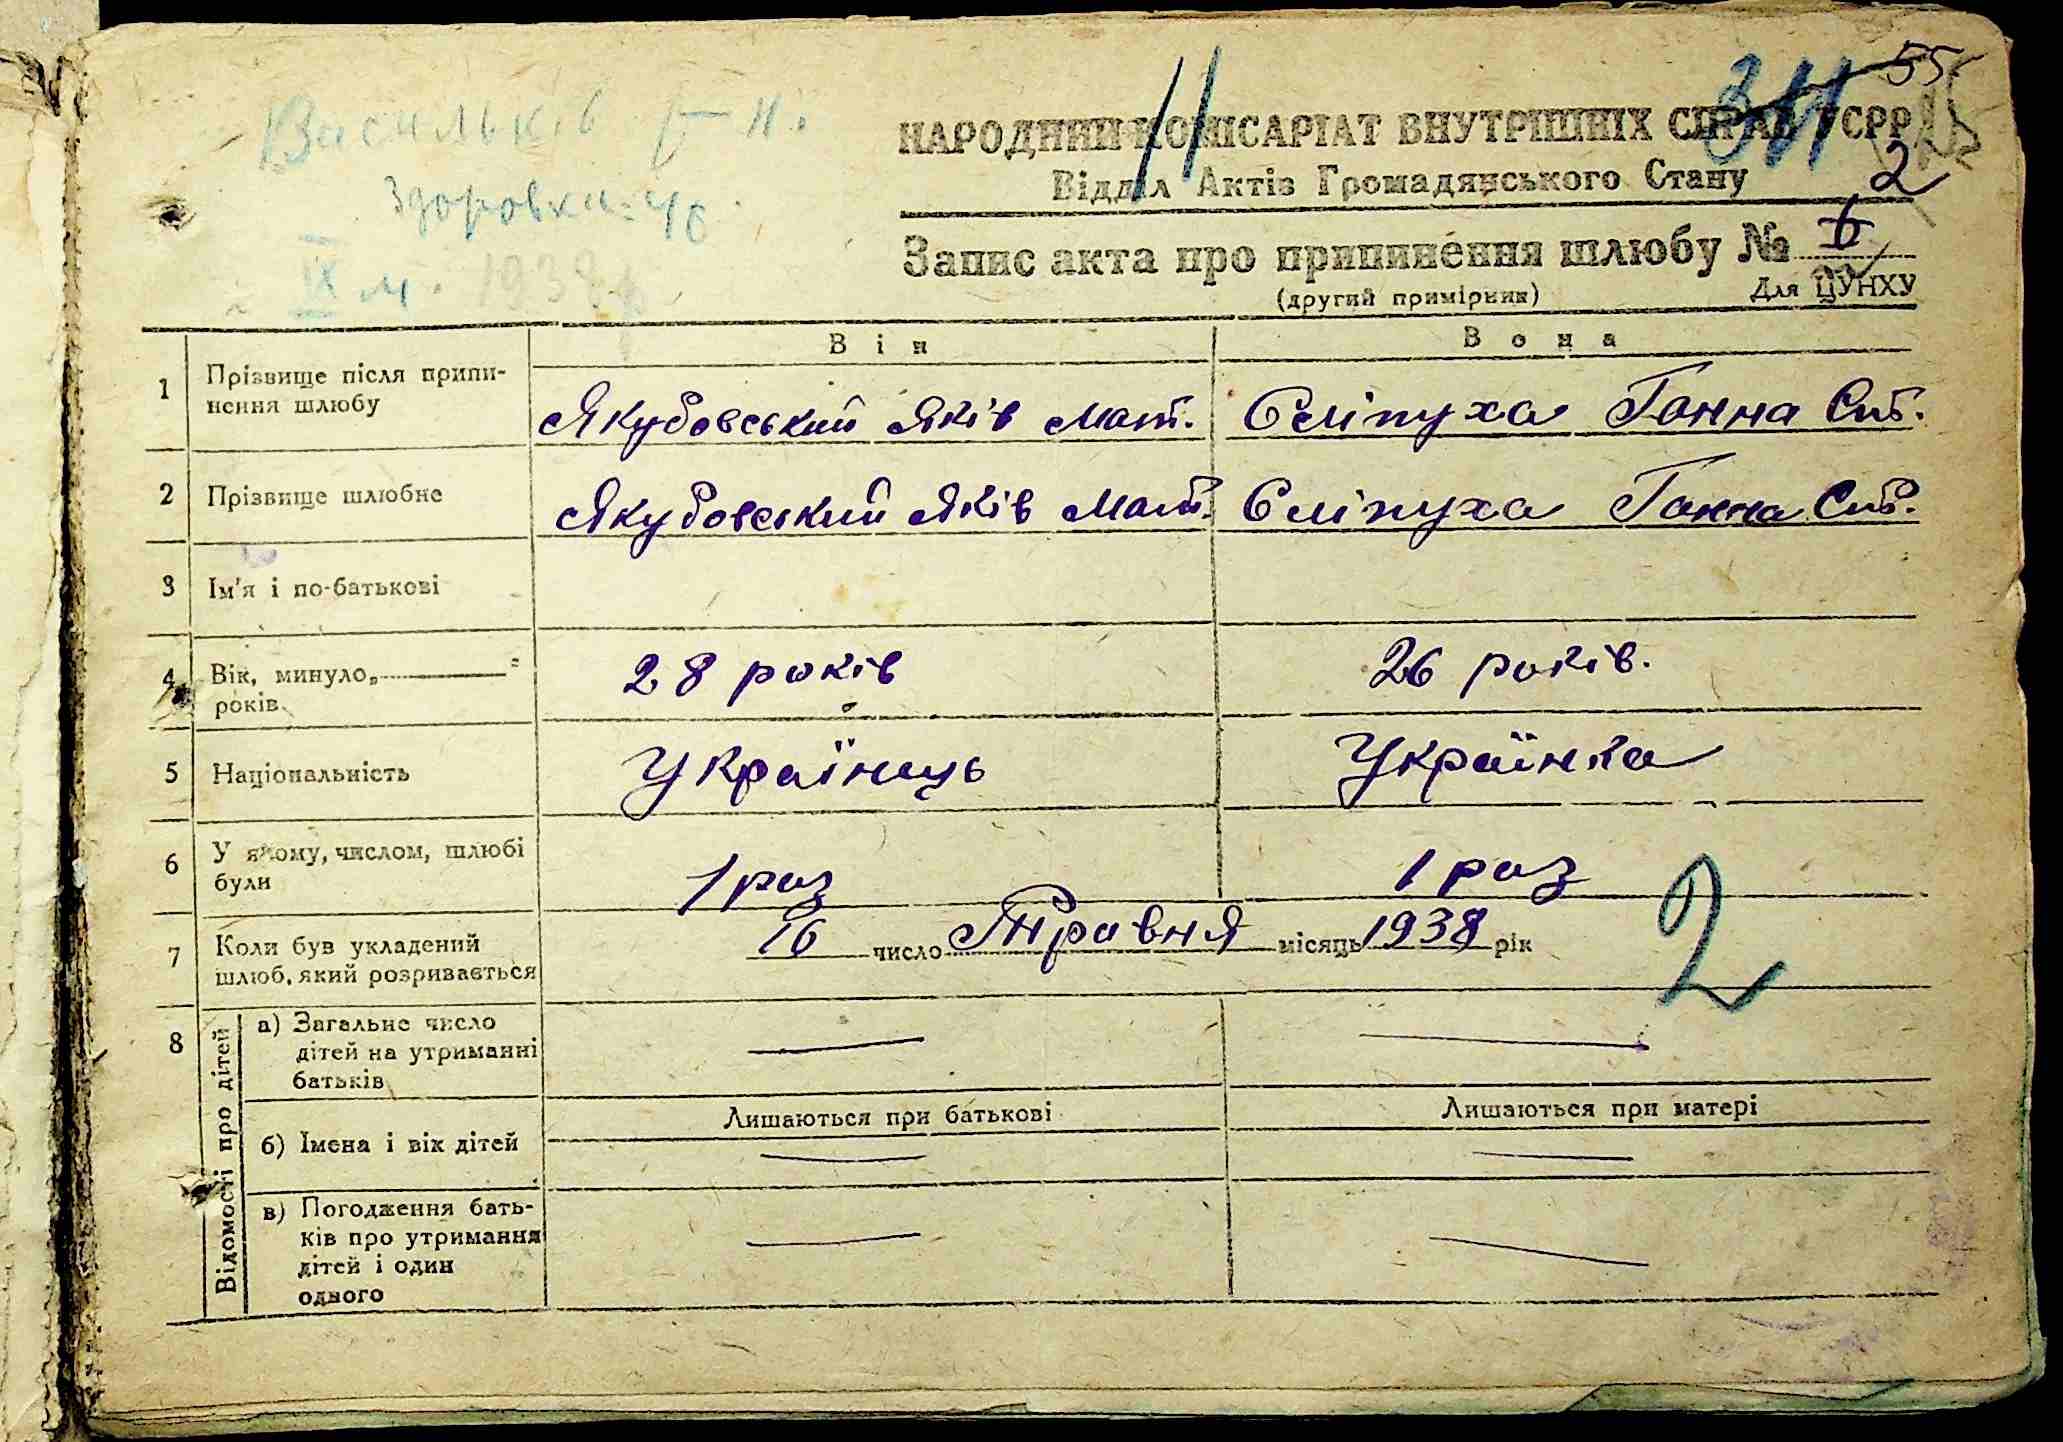 Васильків
Здоровка
IX м. 1938 р.
55
311
НАРОДНИЙ КОМІСАРІАТ ВНУТРІШНІХ СПРАВ УСРР
Відділ Актів Громадянського Стану
2
Запис акта про припинення шлюбу №
(другий примірник) Для ЦУНХУ
Він Вона
1 Прізвище після припи-
нення шлюбу
Якубовський Яків Мат. Сліпуха Ганна Сит.
2 Прізвище шлюбне Якубовський Яків Мат. Сліпуха Ганна
3 Ім'я і по-батькові
4 Вік, минуло
років
28 років 26 років.
5 Національність Українець Українка
6 У якому, числом, шлюбі
були
1 раз 1 раз
7 Коли був укладений
шлюб, який розривається
16 число Травня місяць 1938 рік
2
8 Відомості про дітей
а) Загальне число
дітей на утриманні
батьків
Лишаються при батькові Лишаються при матері
б) Імена і вік дітей
в) Погодження бать-
ків про утримання
дітей і один
одного